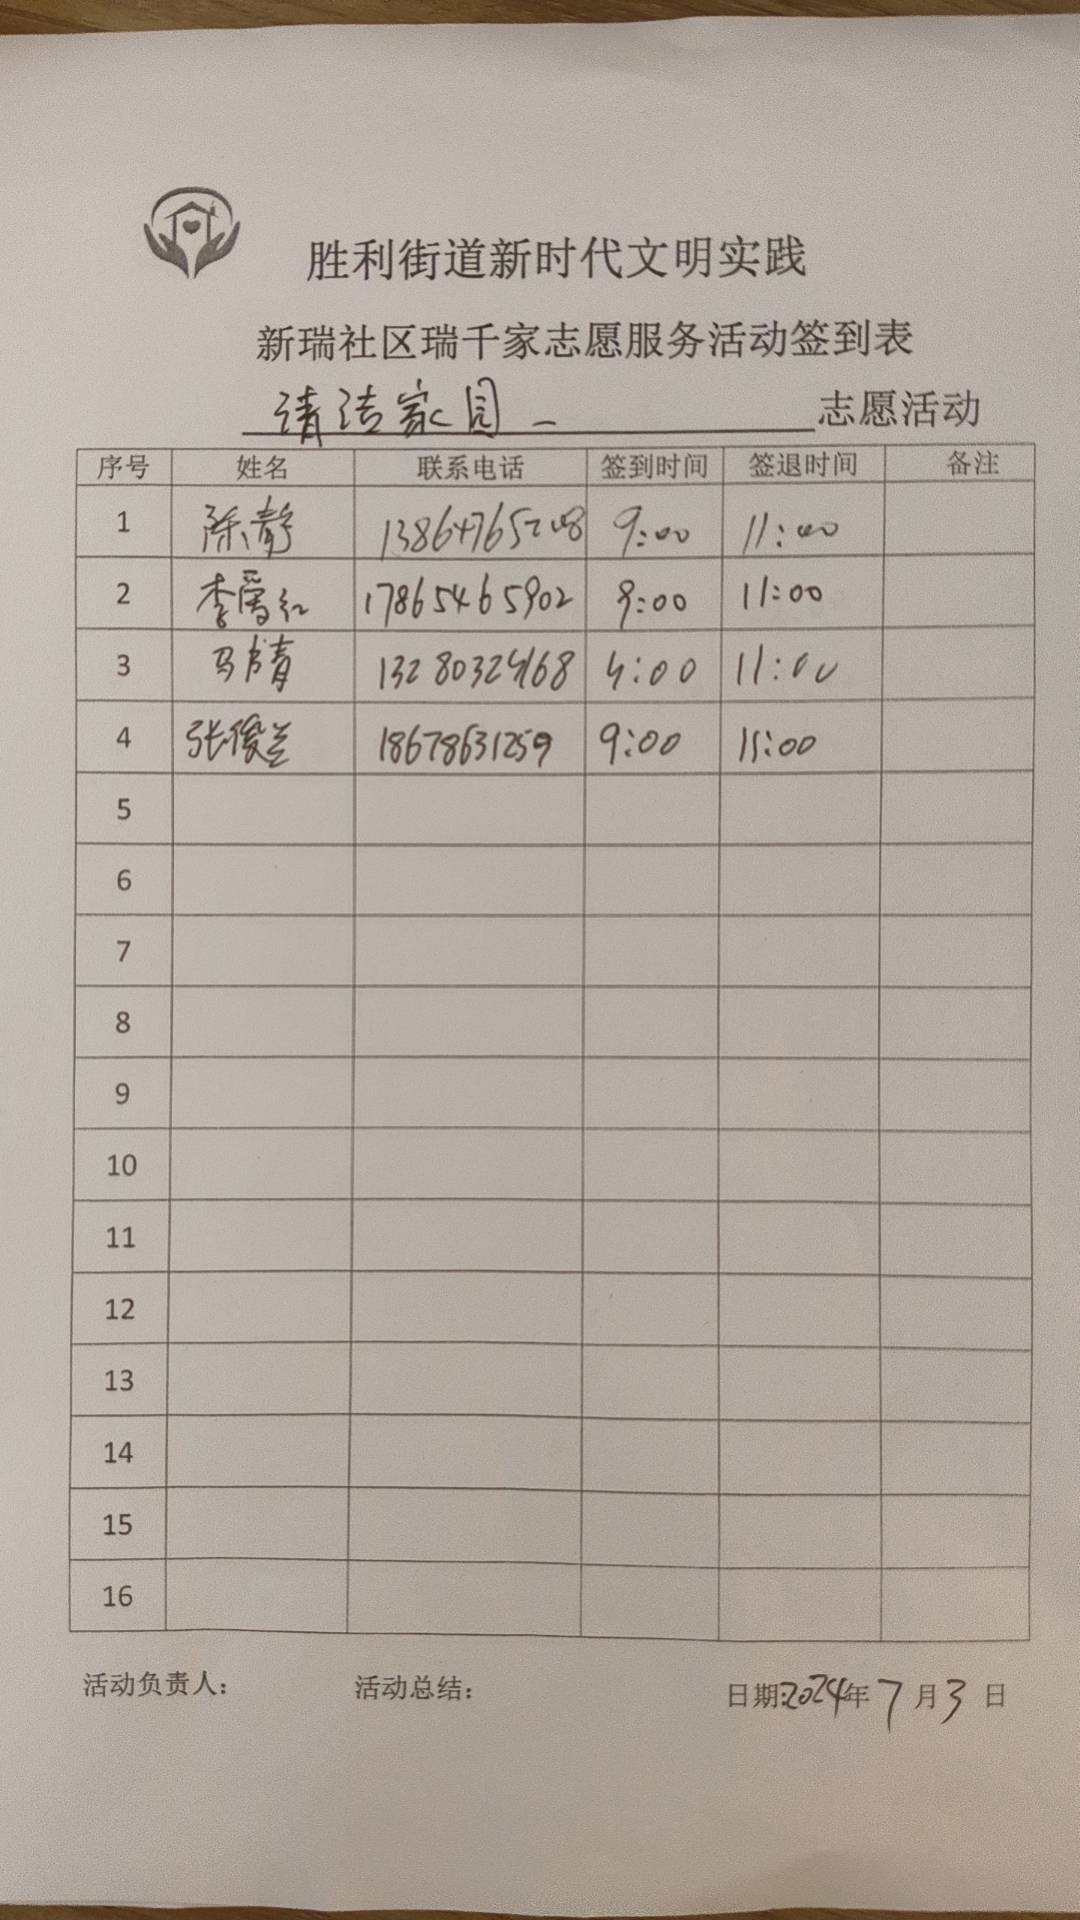 胜利街道新时代文明实践
新瑞社区瑞千家志愿服务活动签到表
请洁家园 志愿活动
序号 姓名 联系电话 签到时间 签退时间 备注
1 陈静 9:00 11:00
2 17865465902 9:00 11:00
3 马倩 13280324168 11:00
4 张俊兰 18678631259 9:00 11:00
5
6
7
8
9
10
11
12
13
14
15
16
活动负责人: 活动总结: 日期:2024年7月3日